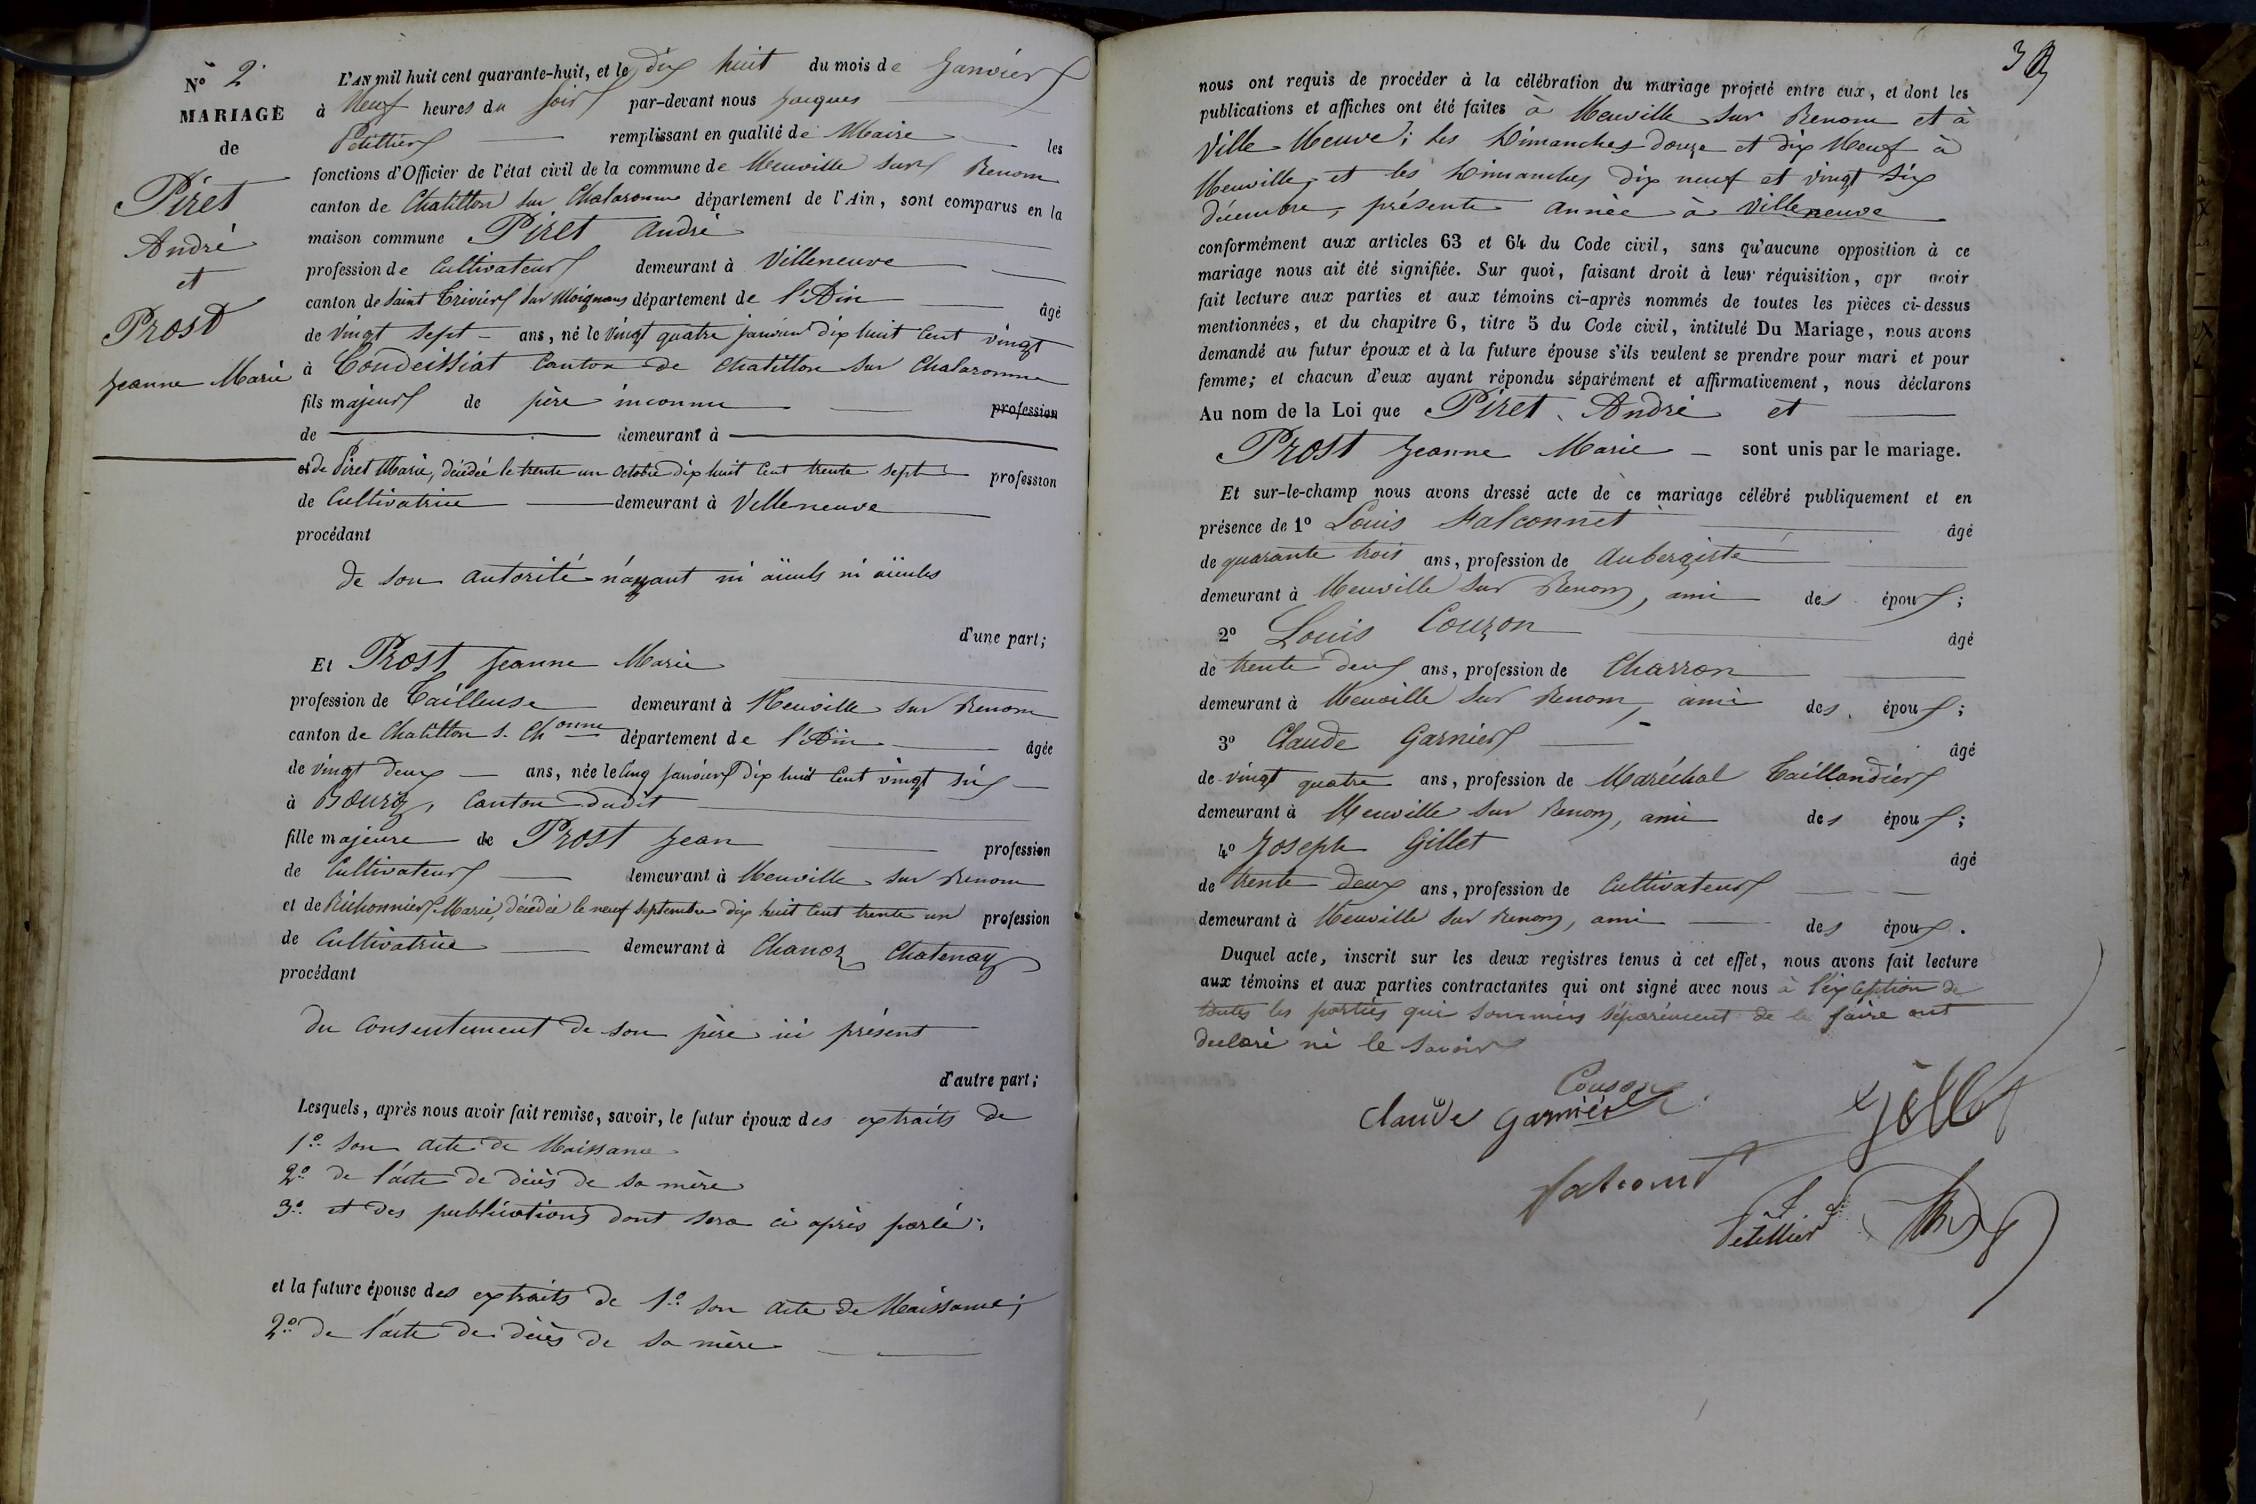 Nº 2
MARIAGE
de
Piret
André
et
Prost
Jeanne Marie
L'AN mil huit cent quarante-huit, et le dix huit du mois de Janvier
à Neuf heures du soir par-devant nous Jacques
Petillier remplissant en qualité de Maire les
fonctions d'Officier de l'état civil de la commune de Neuville sur Renom
canton de Chatillon sur Chalaronne département de l'Ain, sont comparus en la
maison commune Piret André
profession de Cultivateur demeurant à Villeneuve
canton de Saint Trivier sur Moignans département de l'Ain âgé
de vingt sept ans, né le vingt quatre janvier dix huit cent vingt
à Condeissiat Canton de Chatillon sur Chalaronne
fils majeur de père inconnu profession
de demeurant à
et de Piret Marie, décédée le trente un octobre dix huit cent trente sept profession
de Cultivatrice demeurant à Villeneuve
procédant
de son autorité n'ayant ni aïeuls ni aïeules
d'une part;
Et Prost Jeanne Marie
profession de Tailleuse demeurant à Neuville sur Renom
canton de Chatillon s. Chonne département de l'Ain âgée
de vingt deux ans, née le cinq janvier dix huit cent vingt six
à Bourg, Canton dudit
fille majeure de Prost Jean profession
de Cultivateur demeurant à Neuville sur Renom
et de Richonnier Marie, décédée le neuf septembre dix huit cent trente un profession
de Cultivatrice demeurant à Chanoz Chatenay
procédant
du consentement de son père ici présent
d'autre part;
Lesquels, après nous avoir fait remise, savoir, le futur époux des extraits de
1º son acte de Naissance
2º de l'acte de décès de sa mère
3º et des publications dont sera ci après parlé;
et la future épouse des extraits de 1º son acte de Naissance;
2º de l'acte de décès de sa mère
3
nous ont requis de procéder à la célébration du mariage projeté entre eux, et dont les
publications et affiches ont été faites à Neuville sur Renom et à
Ville Neuve; les Dimanches douze et dix Neuf à
Neuville, et les Dimanches dix neuf et vingt six
décembre, présente année à Villeneuve
conformément aux articles 63 et 64 du Code civil, sans qu'aucune opposition à ce
mariage nous ait été signifiée. Sur quoi, faisant droit à leur réquisition, apr avoir
fait lecture aux parties et aux témoins ci-après nommés de toutes les pièces ci-dessus
mentionnées, et du chapitre 6, titre 5 du Code civil, intitulé Du Mariage, nous avons
demandé au futur époux et à la future épouse s'ils veulent se prendre pour mari et pour
femme; et chacun d'eux ayant répondu séparément et affirmativement, nous déclarons
Au nom de la Loi que Piret André et
Prost Jeanne Marie sont unis par le mariage.
Et sur-le-champ nous avons dressé acte de ce mariage célébré publiquement et en
présence de 1º Louis Falconnet âgé
de quarante trois ans, profession de Aubergiste
demeurant à Neuville sur Renom, ami des époux;
2º Louis Couzon âgé
de trente deux ans, profession de Charron
demeurant à Neuville sur Renom, ami des époux;
3º Claude Garnier âgé
de vingt quatre ans, profession de Maréchal Taillandier
demeurant à Neuville sur Renom, ami des époux;
4º Joseph Gillet âgé
de trente deux ans, profession de Cultivateur
demeurant à Neuville sur Renom, ami des époux.
Duquel acte, inscrit sur les deux registres tenus à cet effet, nous avons fait lecture
aux témoins et aux parties contractantes qui ont signé avec nous à l'exception de
toutes les parties qui sommées séparément de le faire ont
declaré ne le savoir
Couson
Claude Garnier
Gillet
Petillier